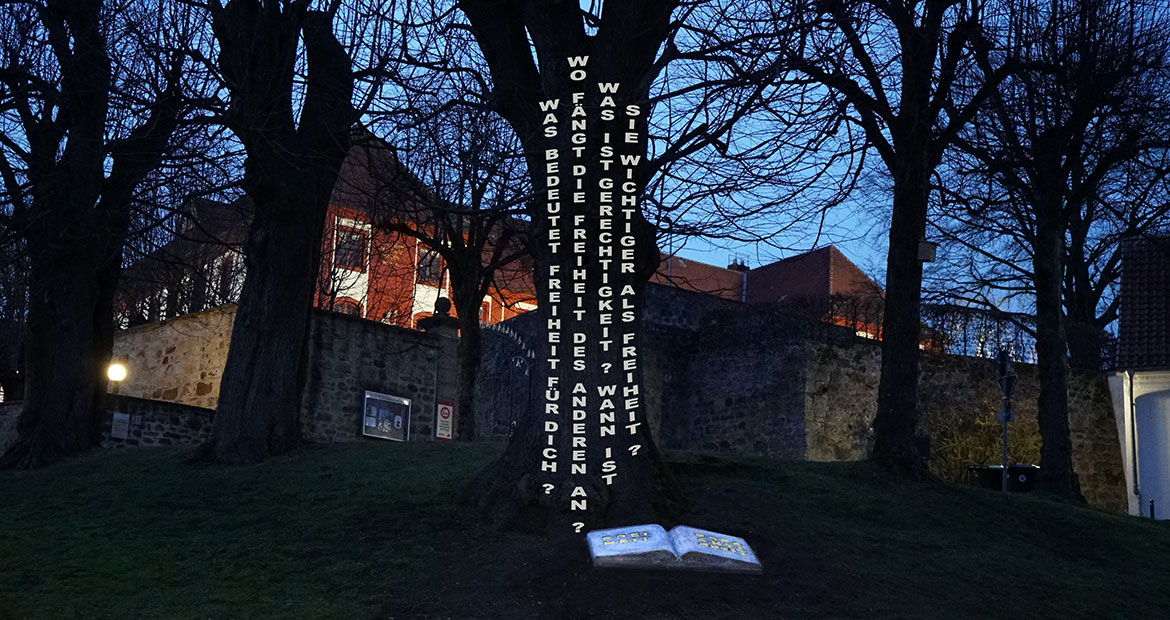 WAS BEDEUTET FREIHEIT FÜR DICH ?
WO FÄNGT DIE FREIHEIT DES ANDEREN AN ?
WAS IST GERECHTIGKEIT ? WANN IST
SIE WICHTIGER ALS FREIHEIT ?